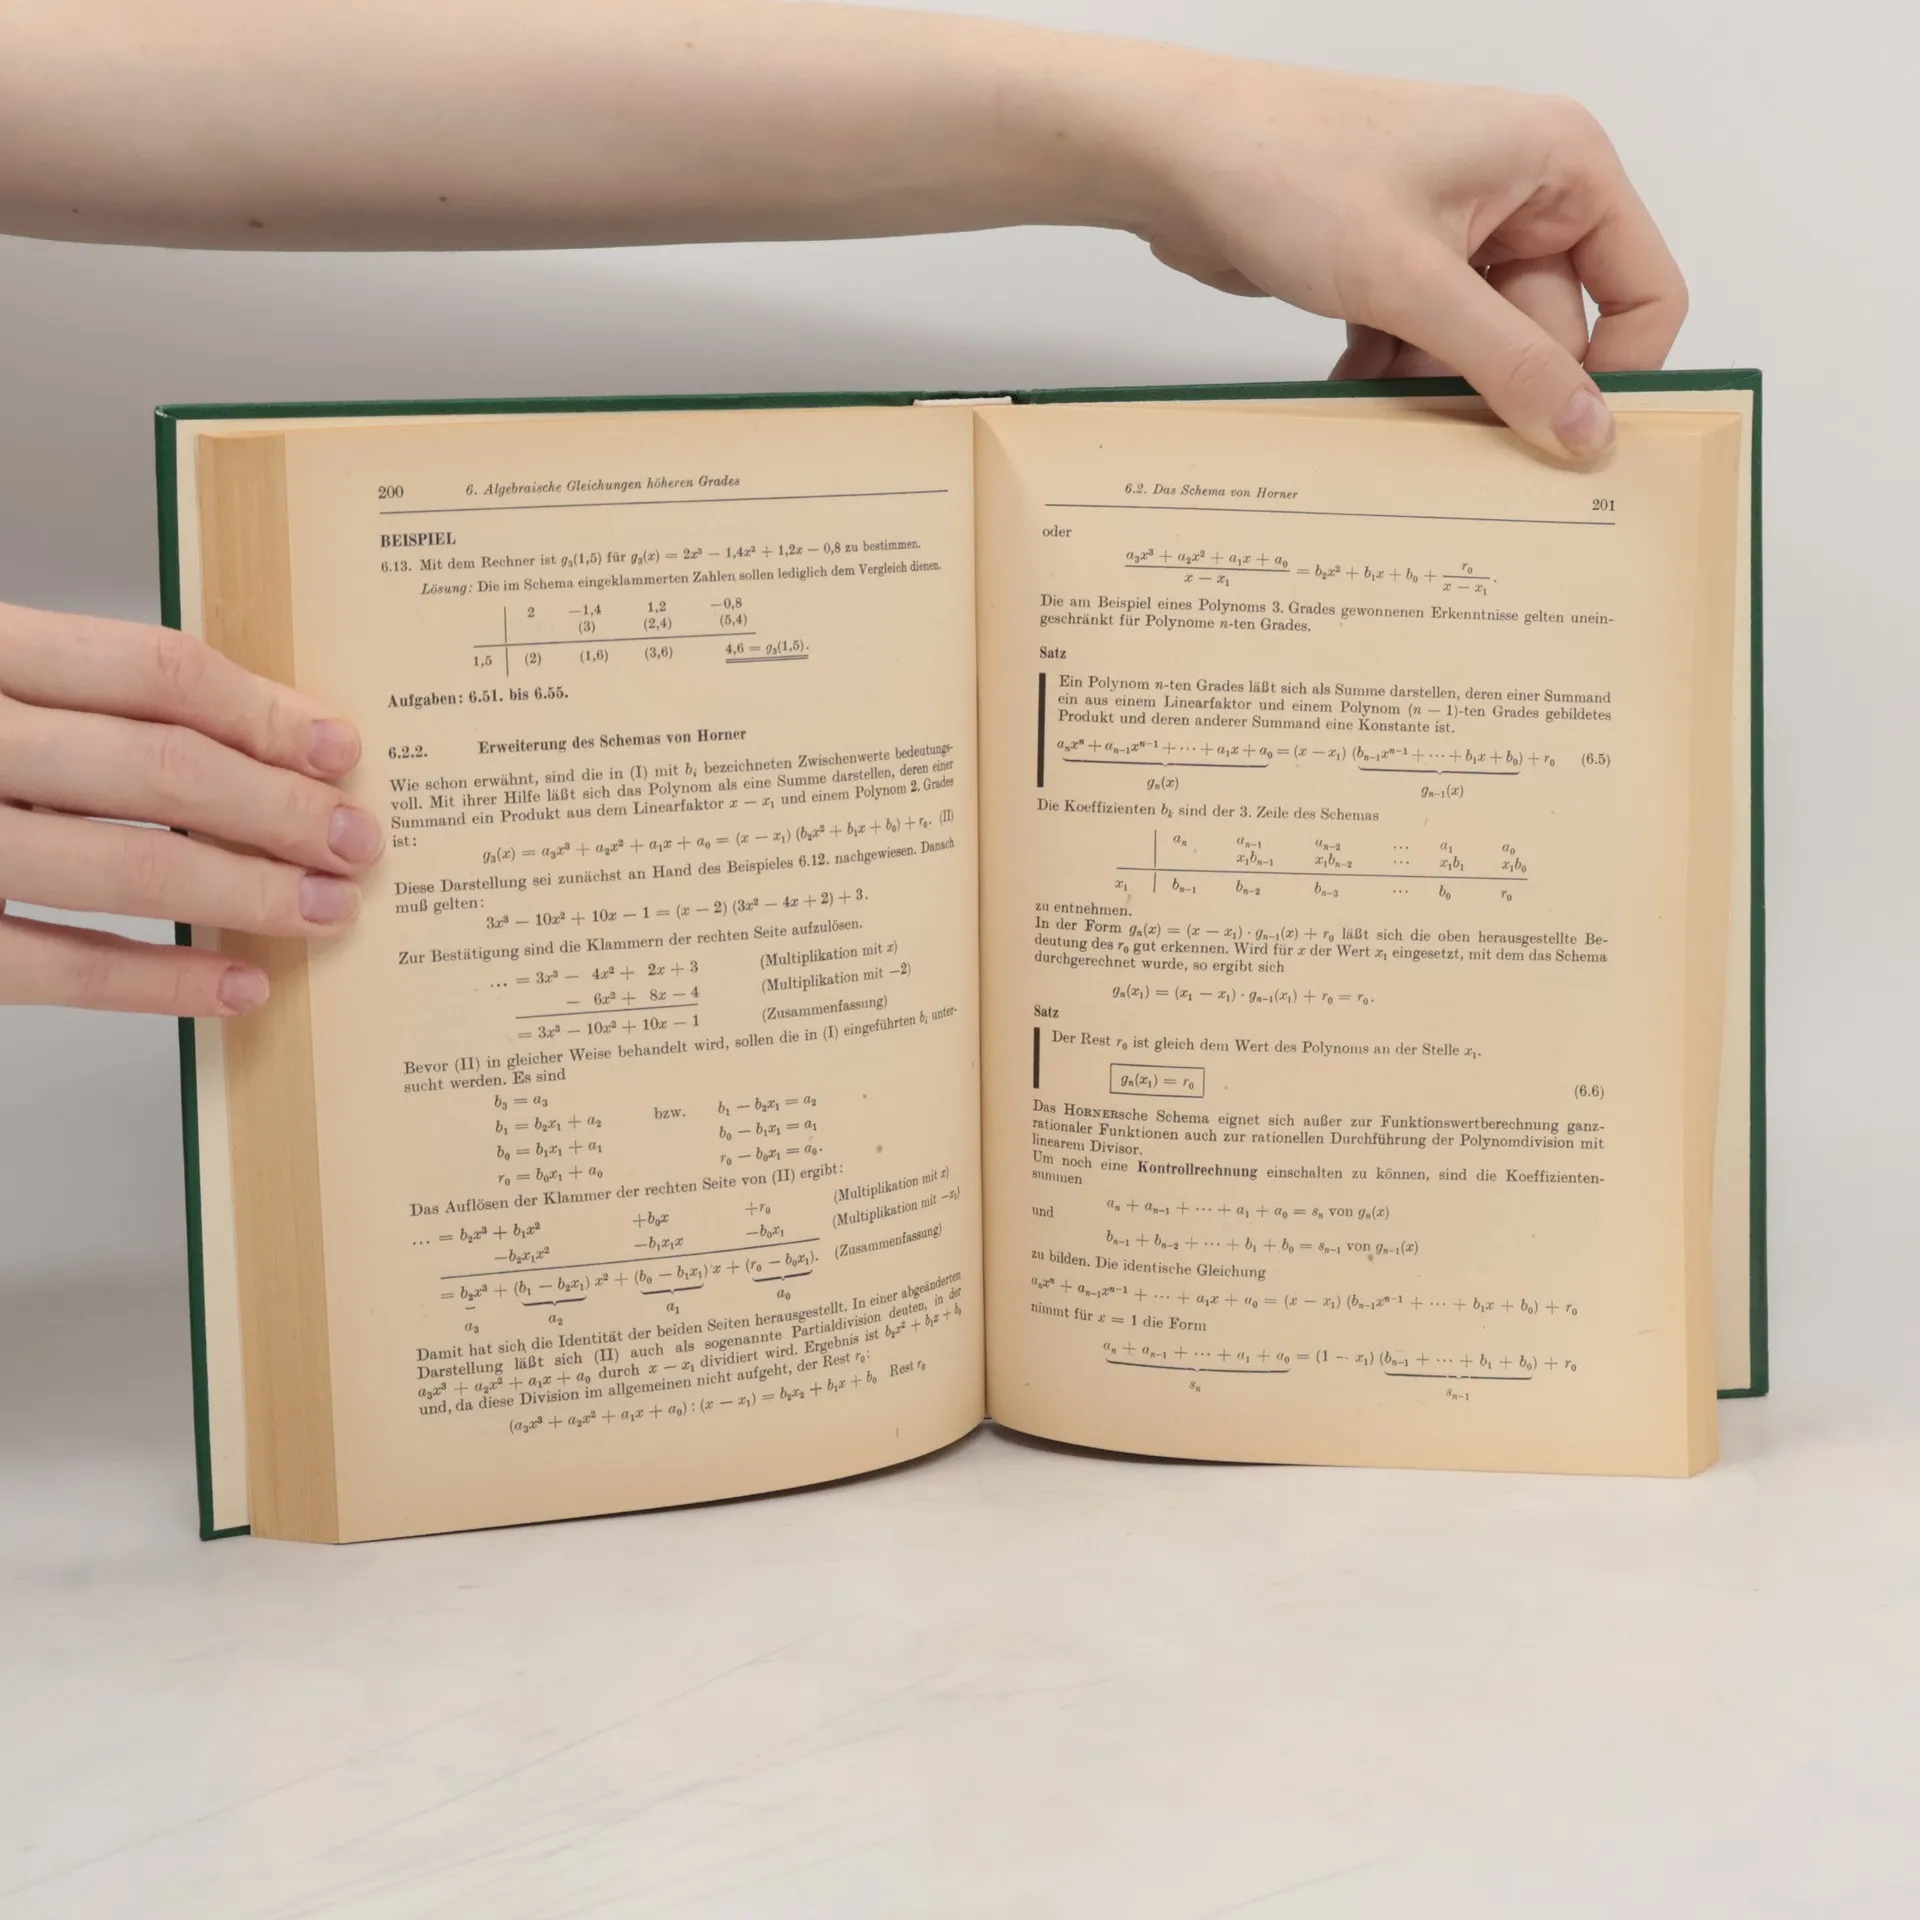 200 6. Algebraische Gleichungen höheren Grades
BEISPIEL
6.13. Mit dem Rechner ist g₃(1,5) für g₃(x) = 2x³ − 1,4x² + 1,2x − 0,8 zu bestimmen.
Lösung: Die im Schema eingeklammerten Zahlen sollen lediglich dem Vergleich dienen.
2 −1,4 1,2 −0,8
(3) (2,4) (5,4)
1,5 (2) (1,6) (3,6) 4,6 = g₃(1,5).
Aufgaben: 6.51. bis 6.55.
6.2.2. Erweiterung des Schemas von Horner
Wie schon erwähnt, sind die in (I) mit bᵢ bezeichneten Zwischenwerte bedeutungs-
voll. Mit ihrer Hilfe läßt sich das Polynom als eine Summe darstellen, deren einer
Summand ein Produkt aus dem Linearfaktor x − x₁ und einem Polynom 2. Grades
ist:
g₃(x) = a₃x³ + a₂x² + a₁x + a₀ = (x − x₁) (b₂x² + b₁x + b₀) + r₀. (II)
Diese Darstellung sei zunächst an Hand des Beispieles 6.12. nachgewiesen. Danach
muß gelten:
3x³ − 10x² + 10x − 1 = (x − 2) (3x² − 4x + 2) + 3.
Zur Bestätigung sind die Klammern der rechten Seite aufzulösen.
... = 3x³ − 4x² + 2x + 3 (Multiplikation mit x)
− 6x² + 8x − 4 (Multiplikation mit −2)
= 3x³ − 10x² + 10x − 1 (Zusammenfassung)
Bevor (II) in gleicher Weise behandelt wird, sollen die in (I) eingeführten bᵢ unter-
sucht werden. Es sind
b₃ = a₃
b₁ = b₂x₁ + a₂ bzw. b₁ − b₂x₁ = a₂
b₀ = b₁x₁ + a₁ b₀ − b₁x₁ = a₁
r₀ = b₀x₁ + a₀ r₀ − b₀x₁ = a₀.
Das Auflösen der Klammer der rechten Seite von (II) ergibt:
... = b₂x³ + b₁x² +b₀x +r₀ (Multiplikation mit x)
−b₂x₁x² −b₁x₁x −b₀x₁ (Multiplikation mit −x₁)
= b₂x³ + (b₁ − b₂x₁) x² + (b₀ − b₁x₁) x + (r₀ − b₀x₁). (Zusammenfassung)
a₃ a₂ a₁ a₀
Damit hat sich die Identität der beiden Seiten herausgestellt. In einer abgeänderten
Darstellung läßt sich (II) auch als sogenannte Partialdivision deuten, in der
a₃x³ + a₂x² + a₁x + a₀ durch x − x₁ dividiert wird. Ergebnis ist b₂x² + b₁x + b₀
und, da diese Division im allgemeinen nicht aufgeht, der Rest r₀:
(a₃x³ + a₂x² + a₁x + a₀) : (x − x₁) = b₂x₂ + b₁x + b₀ Rest r₀
6.2. Das Schema von Horner 201
oder
a₃x³ + a₂x² + a₁x + a₀ / x − x₁ = b₂x² + b₁x + b₀ + r₀ / x − x₁.
Die am Beispiel eines Polynoms 3. Grades gewonnenen Erkenntnisse gelten unein-
geschränkt für Polynome n-ten Grades.
Satz
Ein Polynom n-ten Grades läßt sich als Summe darstellen, deren einer Summand
ein aus einem Linearfaktor und einem Polynom (n − 1)-ten Grades gebildetes
Produkt und deren anderer Summand eine Konstante ist.
aₙxⁿ + aₙ₋₁xⁿ⁻¹ + ··· + a₁x + a₀ = (x − x₁) (bₙ₋₁xⁿ⁻¹ + ··· + b₁x + b₀) + r₀ (6.5)
gₙ(x) gₙ₋₁(x)
Die Koeffizienten bₖ sind der 3. Zeile des Schemas
aₙ aₙ₋₁ aₙ₋₂ ... a₁ a₀
x₁bₙ₋₁ x₁bₙ₋₂ ... x₁b₁ x₁b₀
x₁ bₙ₋₁ bₙ₋₂ bₙ₋₃ ... b₀ r₀
zu entnehmen.
In der Form gₙ(x) = (x − x₁) · gₙ₋₁(x) + r₀ läßt sich die oben herausgestellte Be-
deutung des r₀ gut erkennen. Wird für x der Wert x₁ eingesetzt, mit dem das Schema
durchgerechnet wurde, so ergibt sich
gₙ(x₁) = (x₁ − x₁) · gₙ₋₁(x₁) + r₀ = r₀.
Satz
Der Rest r₀ ist gleich dem Wert des Polynoms an der Stelle x₁.
gₙ(x₁) = r₀ (6.6)
Das HORNERsche Schema eignet sich außer zur Funktionswertberechnung ganz-
rationaler Funktionen auch zur rationellen Durchführung der Polynomdivision mit
linearem Divisor.
Um noch eine Kontrollrechnung einschalten zu können, sind die Koeffizienten-
summen
aₙ + aₙ₋₁ + ··· + a₁ + a₀ = sₙ von gₙ(x)
und
bₙ₋₁ + bₙ₋₂ + ··· + b₁ + b₀ = sₙ₋₁ von gₙ₋₁(x)
zu bilden. Die identische Gleichung
aₙxⁿ + aₙ₋₁xⁿ⁻¹ + ··· + a₁x + a₀ = (x − x₁) (bₙ₋₁xⁿ⁻¹ + ··· + b₁x + b₀) + r₀
nimmt für x = 1 die Form
aₙ + aₙ₋₁ + ··· + a₁ + a₀ = (1 − x₁) (bₙ₋₁ + ··· + b₁ + b₀) + r₀
sₙ sₙ₋₁